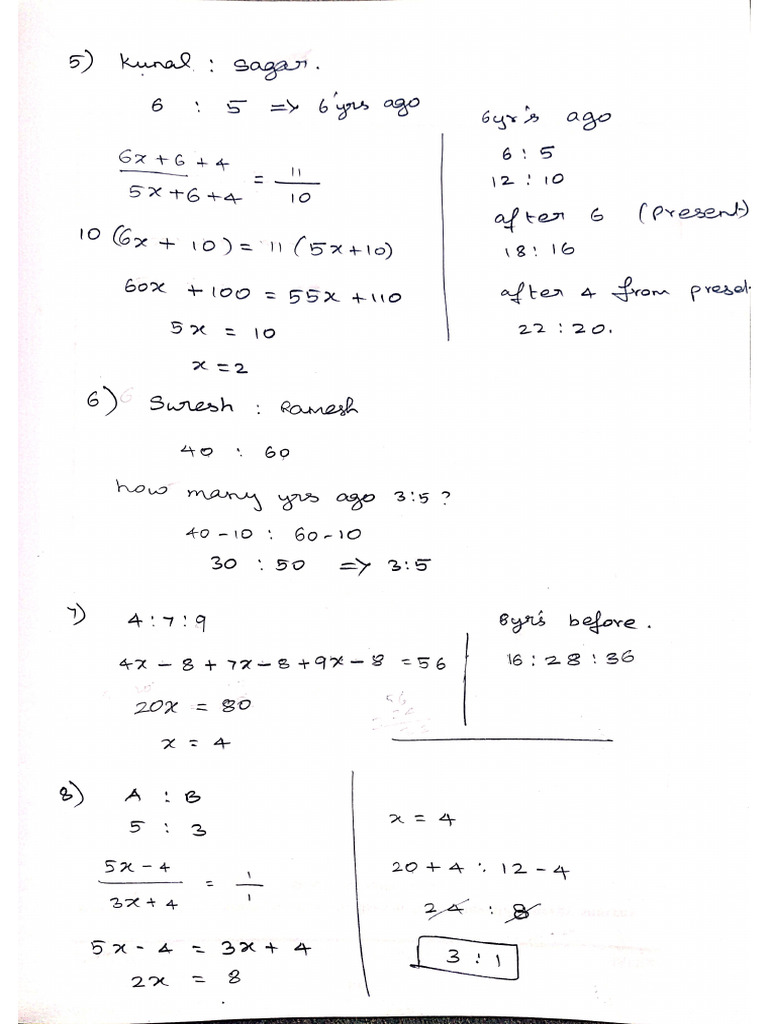 5) Kunal : Sagar.
6 : 5 => 6 yrs ago
6x + 6 + 4
5x + 6 + 4
=
11
10
10 (6x + 10) = 11 (5x + 10)
60x + 100 = 55x + 110
5x = 10
x = 2
6yr's ago
6 : 5
12 : 10
after 6 (present)
18 : 16
after 4 from preset
22 : 20.
6) Suresh : Ramesh
40 : 60
how many yrs ago 3:5 ?
40 - 10 : 60 - 10
30 : 50 => 3:5
7) 4 : 7 : 9
4x - 8 + 7x - 8 + 9x - 8 = 56
20x = 80
x = 4
8yr's before.
16 : 28 : 36
8) A : B
5 : 3
5x - 4
3x + 4
=
1
1
5x - 4 = 3x + 4
2x = 8
x = 4
20 + 4 : 12 - 4
24 : 8
3 : 1